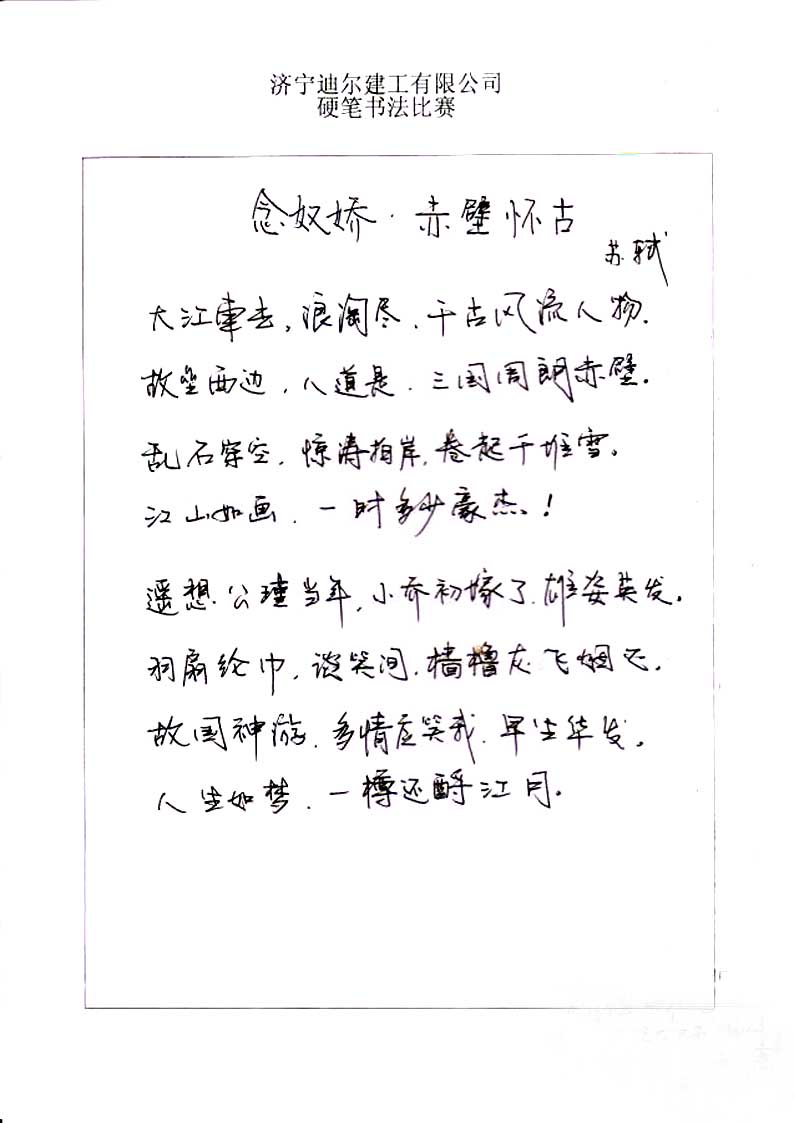 济宁迪尔建工有限公司
硬笔书法比赛
念奴娇·赤壁怀古
苏轼
大江东去,浪淘尽,千古风流人物.
故垒西边,人道是.三国周郎赤壁.
乱石穿空,惊涛拍岸,卷起千堆雪.
江山如画.一时多少豪杰!
遥想公瑾当年,小乔初嫁了.雄姿英发.
羽扇纶巾,谈笑间.樯橹灰飞烟灭.
故国神游.多情应笑我.早生华发.
人生如梦.一樽还酹江月.